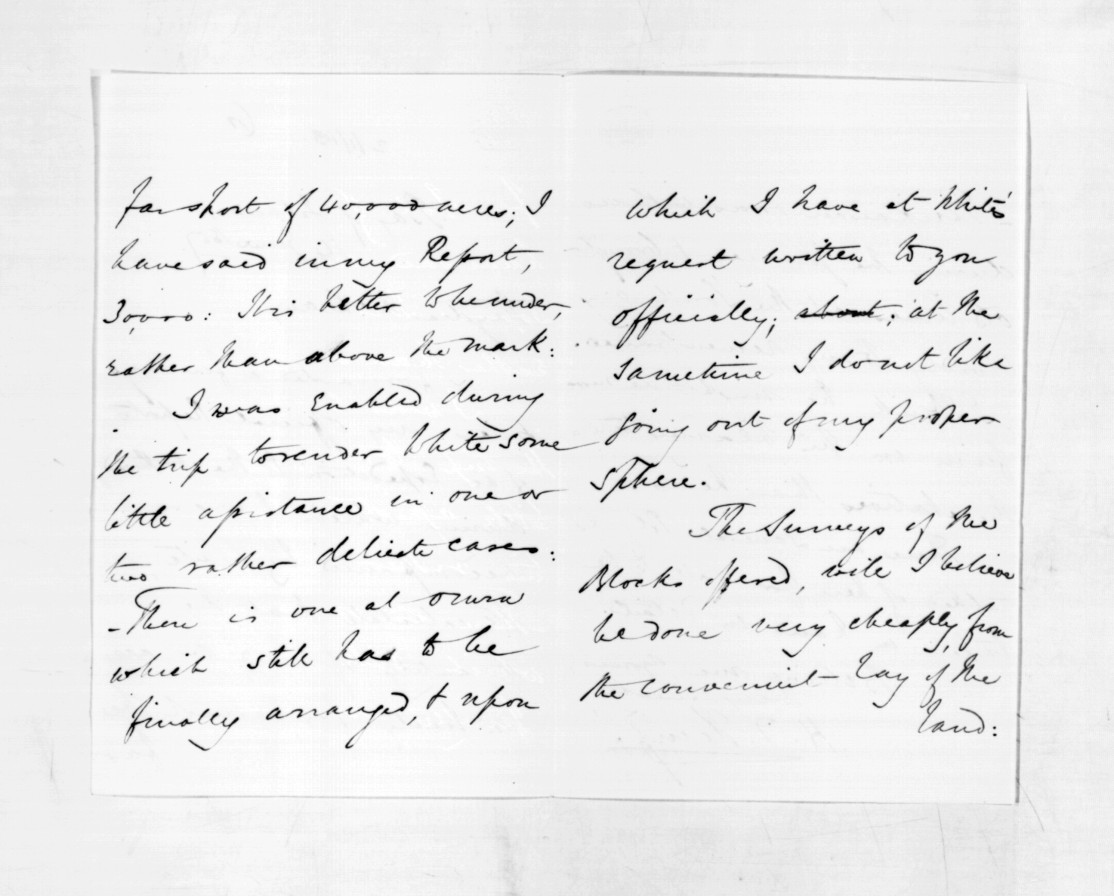 far short of 40,000 acres; I
have said in my Report,
30,000: It is better to be under,
rather than above the mark:
I was enabled during
the trip to render White some
little assistance in one or
two rather delicate cases:
- There is one at Oruru
which still has to be
finally arranged, & upon
which I have at White's
request written to you
officially; about; at the
same time I do not like
going out of my proper
sphere.
The Surveys of the
Blocks offered, will I believe
be done very cheaply, from
the convenient lay of the
land: